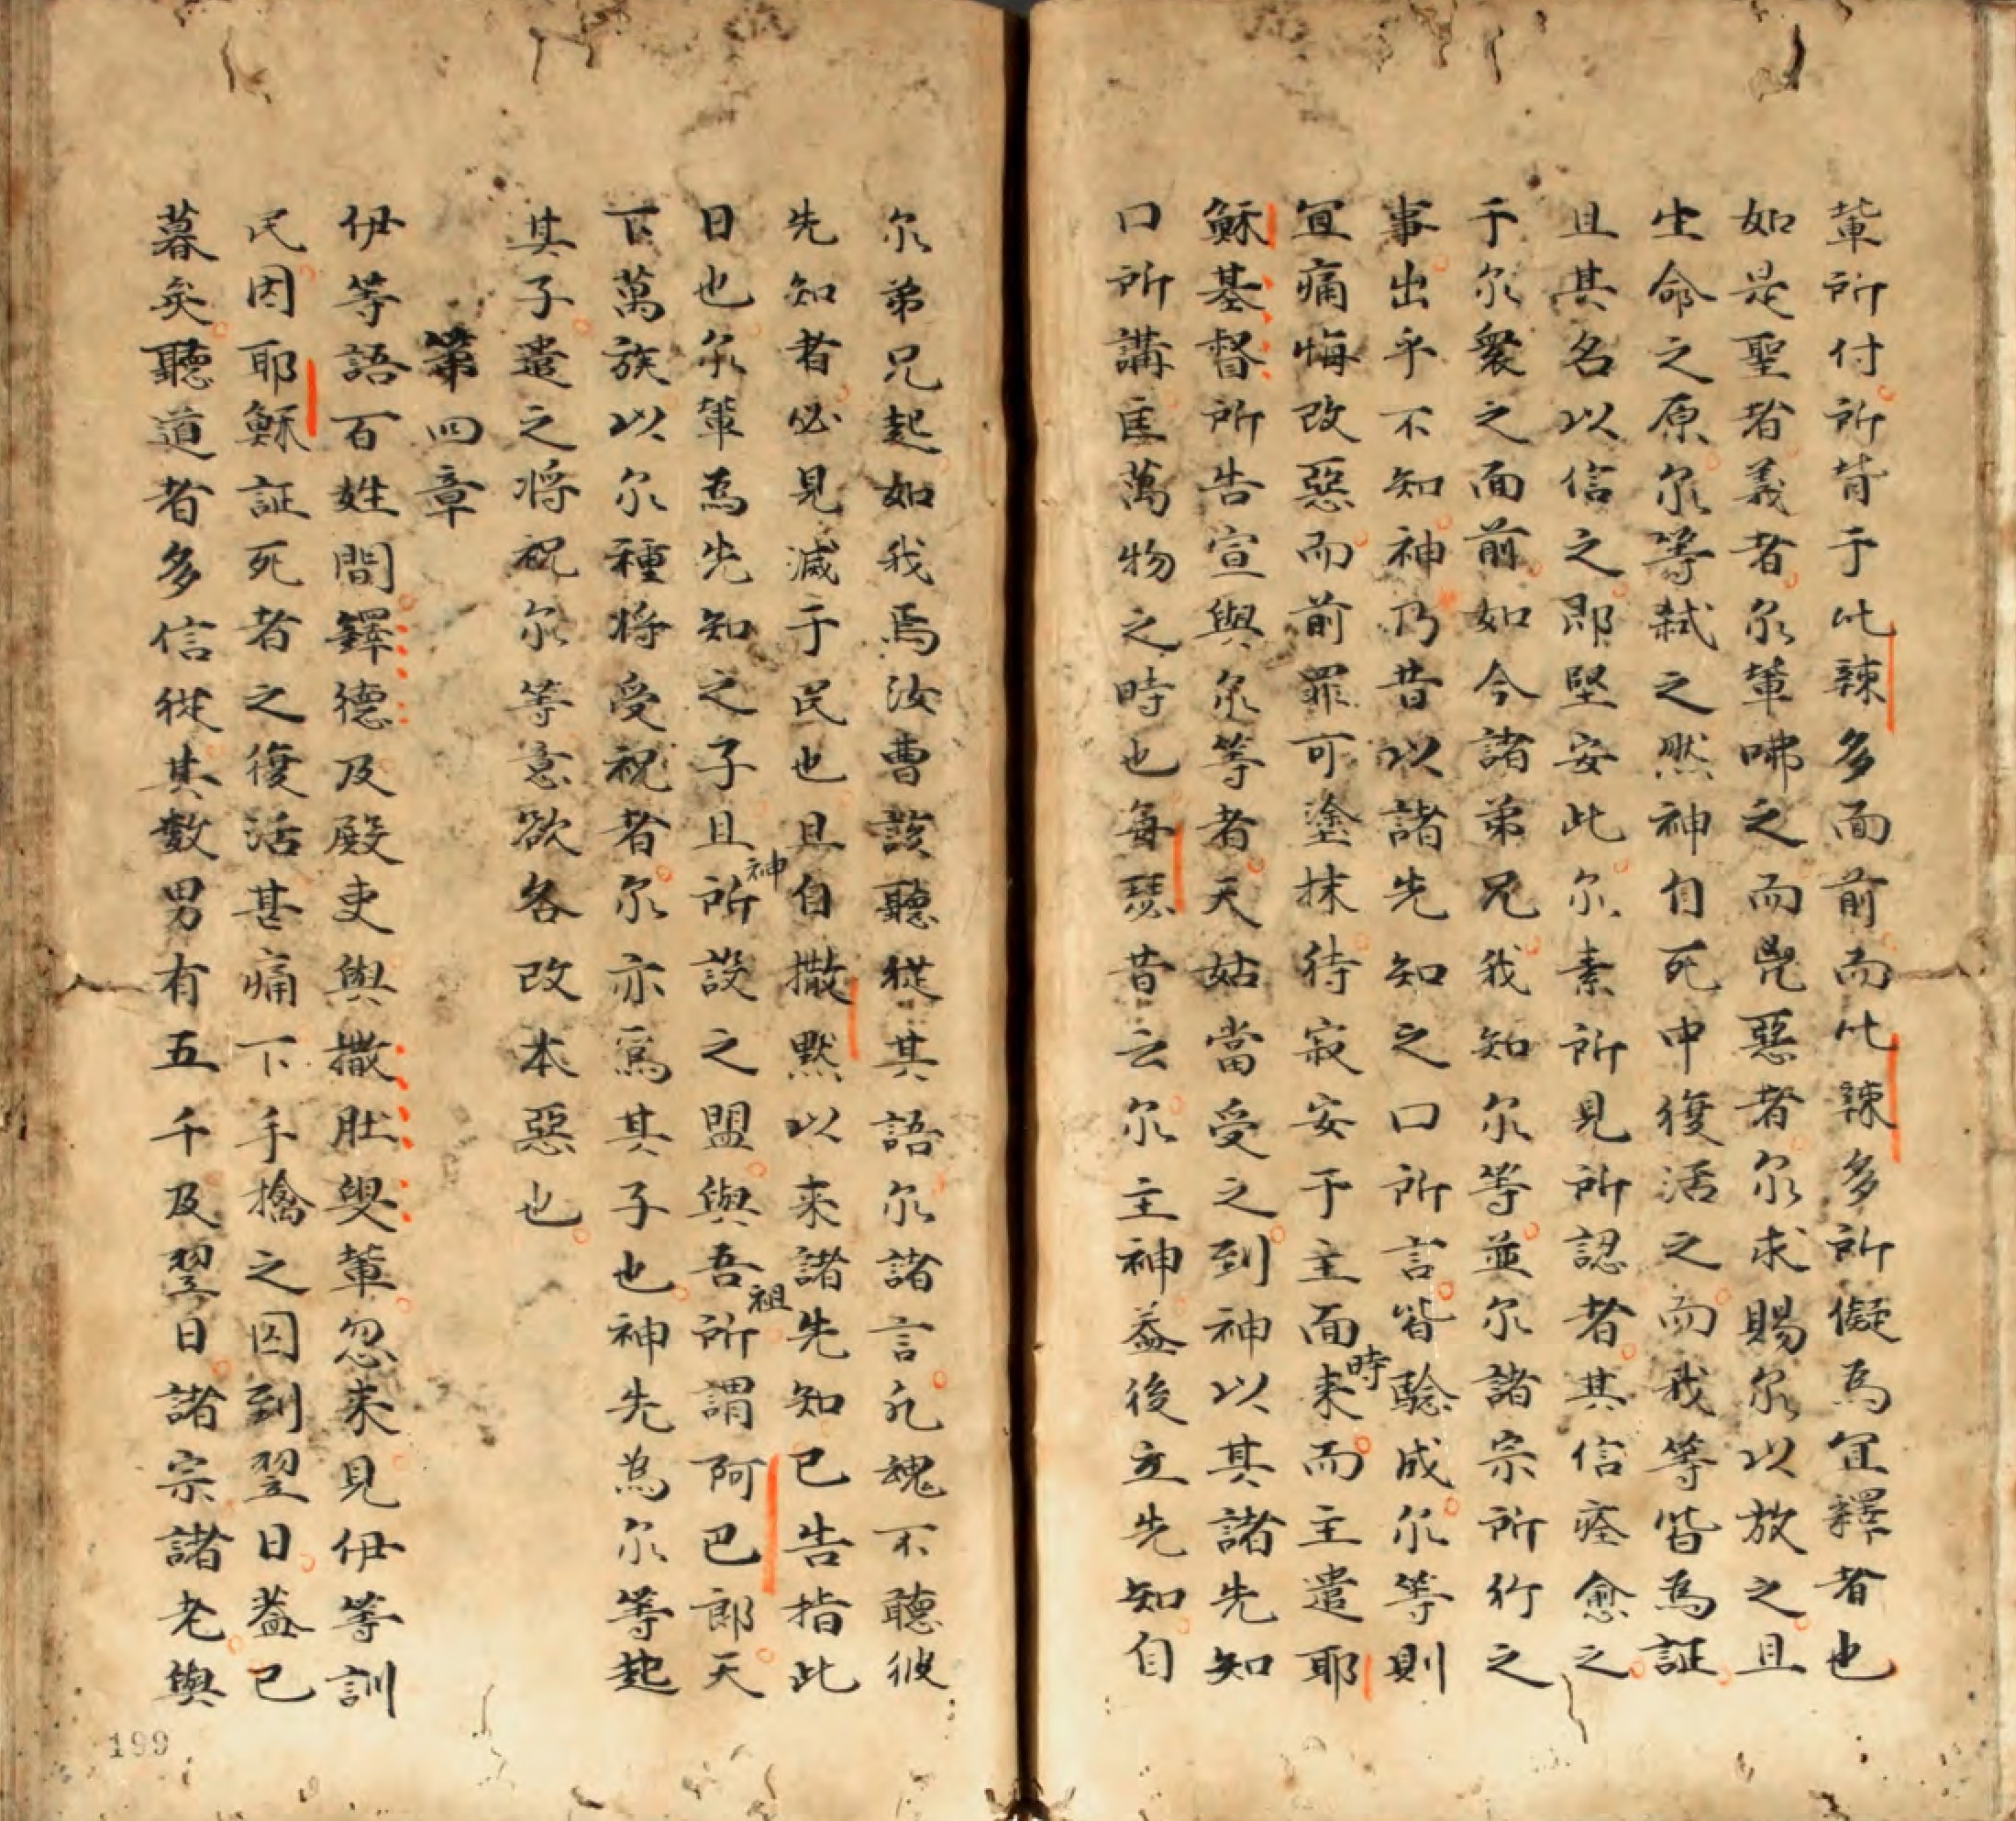 軰所付所背于比辣多面前而比辣多所儗為宜釋者也
如是聖者義者尔軰咈之而兇惡者尔求賜尔以放之且
生命之原尔等弒之然神自死中復活之而我等皆為証
且其名以信之即堅安此尔素所見所認者其信痊愈之
于尔衆之面前如今諸弟兄我知尔等並尔諸宗所行之
事出乎不知神乃昔以諸先知之口所言皆騐成尔等則
宜痛悔改惡而前罪可塗抹待寂安于主面来時而主遣耶
穌基督所告宣與尔等者天姑當受之到神以其諸先知
口所講羣萬物之時也每瑟昔云尔主神葢後立先知自
尔弟兄起如我焉汝曹該聽従其語尔諸言凢魂不聽彼
先知者必見滅于民也且自撒默以来諸先知已告指此
日也尔軰為先知之子且神所設之盟與吾祖所謂阿巴郎天
下萬族以尔種将受祝者尔亦為其子也神先為尔等起
其子遣之将祝尔等意欲各改本惡也
第四章
伊等語百姓間鐸德及殿吏與撒肚叟軰忽来見伊等訓
民因耶穌証死者之復活甚痛下手擒之囚到翌日葢已
暮矣聽道者多信従其數男有五千及翌日諸宗諸老與
199